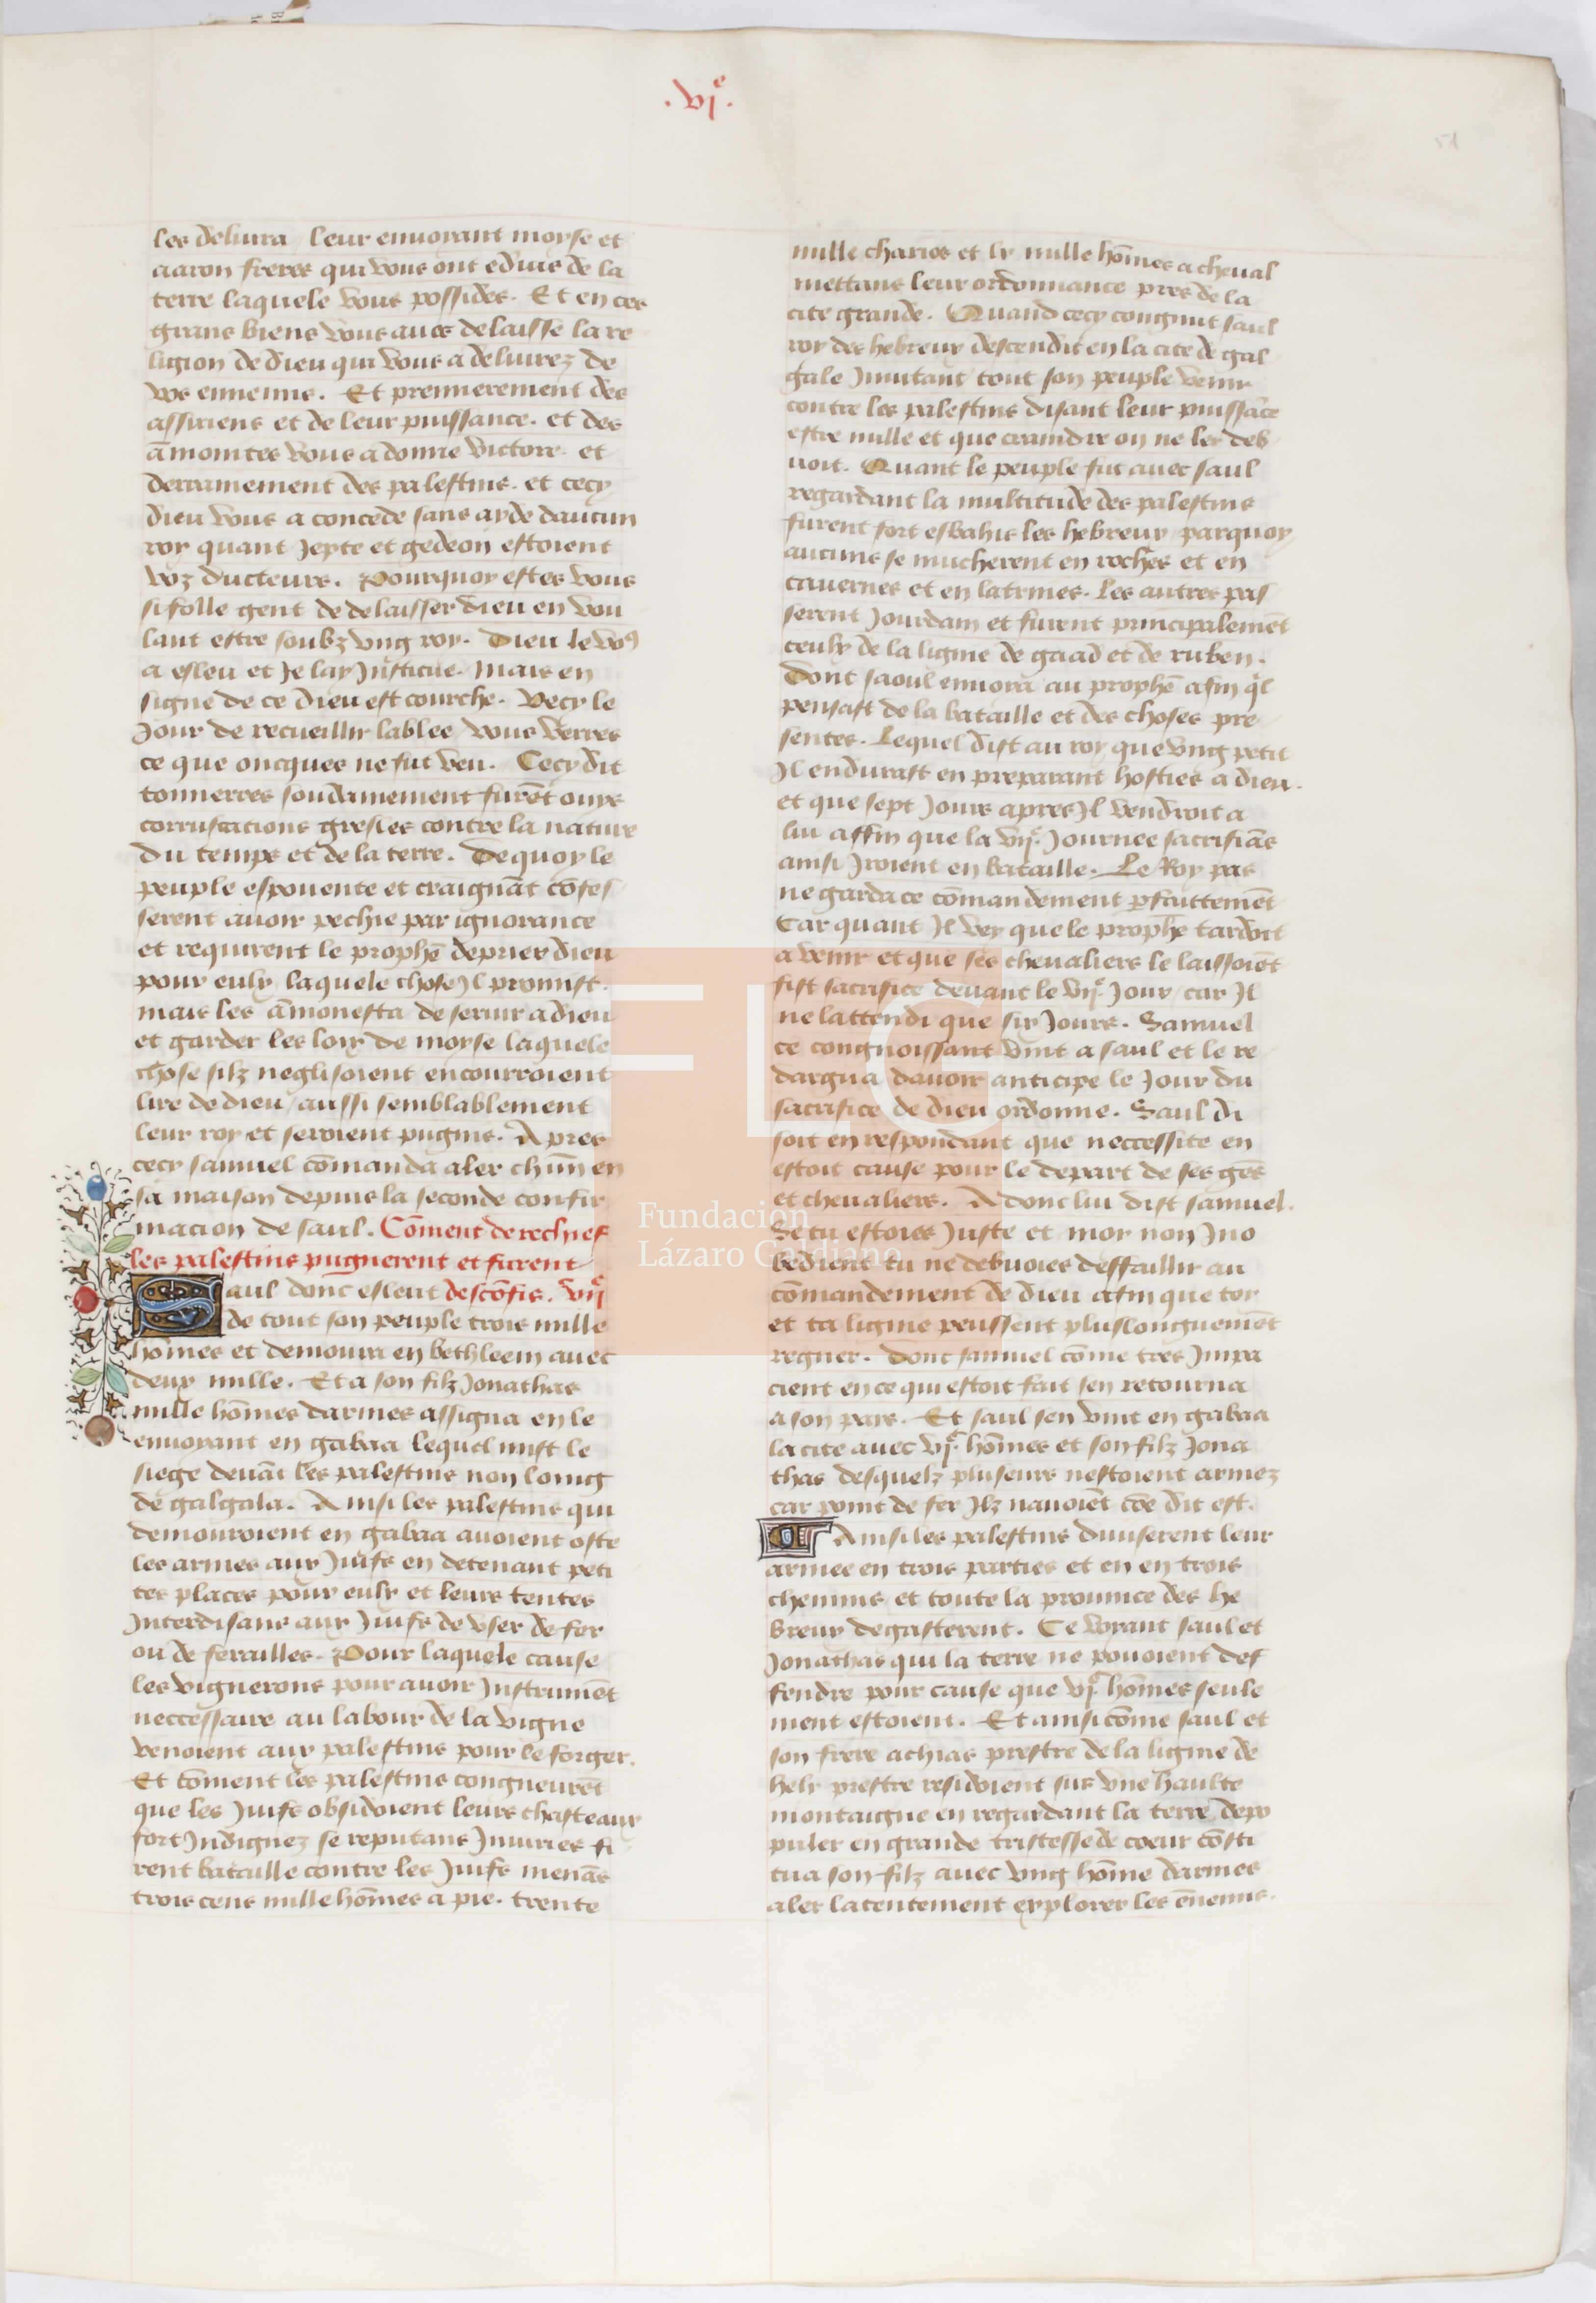 .vje.
51
les deliura leur enuoyant moyse et
aaron freres qui vous ont eduis de la
terre laquele vous possides. Et en ces
grans biens vous aues delaisse la re
ligion de dieu qui vous a deliurez de
vos ennemis. Et premierement des
assiriens et de leur puissance. et des
āmonites vous a donne victore et
derramement des palestins. et cecy
dieu vous a concede sans ayde daucun
roy quant Jepte et gedeon estoient
voz ducteurs. Pourquoy estes vous
si folle gent de delaisser dieu en vou
lant estre soubz vng roy. Dieu le voꝰ
a esleu et Je lay Jnstitue. Mais en
signe de ce dieu est courche. Vecy le
Jour de recueillir lablee vous verres
ce que oncques ne fut veu. Cecy dit
tonnerres soudainement furēt ouys
corruscations gresles contre la nature
du temps et de la terre. De quoy le
peuple espouente et craignāt cōfes
serent auoir pechie par ignorance
et requirent le prophē de prier dieu
pour eulx laquele chose Jl promist.
mais les āmonesta de seruir a dieu
et garder les loix de moyse laquele
chose silz neglisoient encourroient
lire de dieu aussi semblablement
leur roy et seroient pugnis. A pres
cecy samuel cōmanda aler chūn en
sa maison depuis la seconde confir
macion de saul. Cōment de rechief
les palestins pugnerent et furent
Saul donc esleut descōfis. vije
de tout son peuple trois mille
hōmes et demoura en bethleem auec
deux mille. Et a son filz Jonathas
mille hōmes darmes assigna en le
enuoyant en gabaa lequel mist le
siege deuāt les palestins non loing
de galgala. Ainsi les palestins qui
demouroient en gabaa auoient oste
les armes aux Juifs en detenant peti
tes places pour eulx et leurs tentes
Jnterdisans aux Juifs de vser de fer
ou de ferailles. Pour laquele cause
les vignerons pour auoir Jnstrumēt
neccessaire au labour de la vigne
venoient aux palestins pour le forger.
Et cōment les palestins congneurēt
que les Juifs obsidoient leurs chasteaux
fort Jndignez se reputans Jniuries fi
rent bataille contre les Juifs menās
trois cens mille hōmes a pie. trente
mille charios et lx mille hōmes a cheual
mettans leur ordonnance pres de la
cite grande. Quand cecy congnut saul
roy des hebreux descendit en la cite de gal
gale Jnuitant tout son peuple venir
contre les palestins disant leur puissāce
estre nulle et que craindre on ne les deb
uoit. Quant le peuple fut auec saul
regardant la multitude des palestins
furent fort esbahis les hebreux parquoy
aucuns se mucherent en roches et en
cauernes et en latrines. Les autres pas
serent Jourdain et furent principalemēt
ceulx de la ligine de gaad et de ruben.
Dont saoul enuoia au prophē afin ql
pensast de la bataille et des choses pre
sentes. Lequel dist au roy que vng petit
Jl endurast en preparant hosties a dieu.
et que sept Jours apres Jl vendroit a
lui affin que la vije Journee sacrifiās
ainsi Jroient en bataille. Le Roy pas
ne garda ce cōmandement ꝑfaittemēt
Car quant Jl vey que le prophē tardoit
a venir et que ses cheualiers le laissoiēt
fist sacrifice deuant le vije Jour car Jl
ne lattendi que six Jours. Samuel
ce congnoissant vint a saul et le re
dargua dauoir anticipe le Jour du
sacrifice de dieu ordonne. Saul di
soit en respondant que neccessite en
estoit cause pour le depart de ses gēs
et cheualiers. Adonc lui dist samuel.
Se tu estoies Juste et moy non Jno
bedient tu ne debuoies deffaillir au
cōmandement de dieu afin que toy
et ta ligine peussent pluslonguemēt
regner. Donc samuel cōme tres Jmpa
cient en ce qui estoit fait sen retourna
a son pais. Et saul sen vint en gabaa
la cite auec vjc hōmes et son filz Jona
thas desquelz pluseurs nestoient armez
car point de fer Jlz nauoiēt cōe dit est.
Ainsi les palestins diuiserent leur
armee en trois parties et en en trois
chemins et toute la prouince des he
breux degasterent. Ce voyant saul et
Jonathas qui la terre ne pouoient def
fendre pour cause que vjc hōmes seule
ment estoient. Et ainsi cōme saul et
son frere achias prestre de la ligine de
hely prestre residoient sus vne haulte
montaigne en regardant la terre depo
puler en grande tristesse de coeur cōsti
tua son filz auec vng hōme darmes
aler latentement explorer les ēnemis.
FLG
Fundación
Lázaro Galdiano